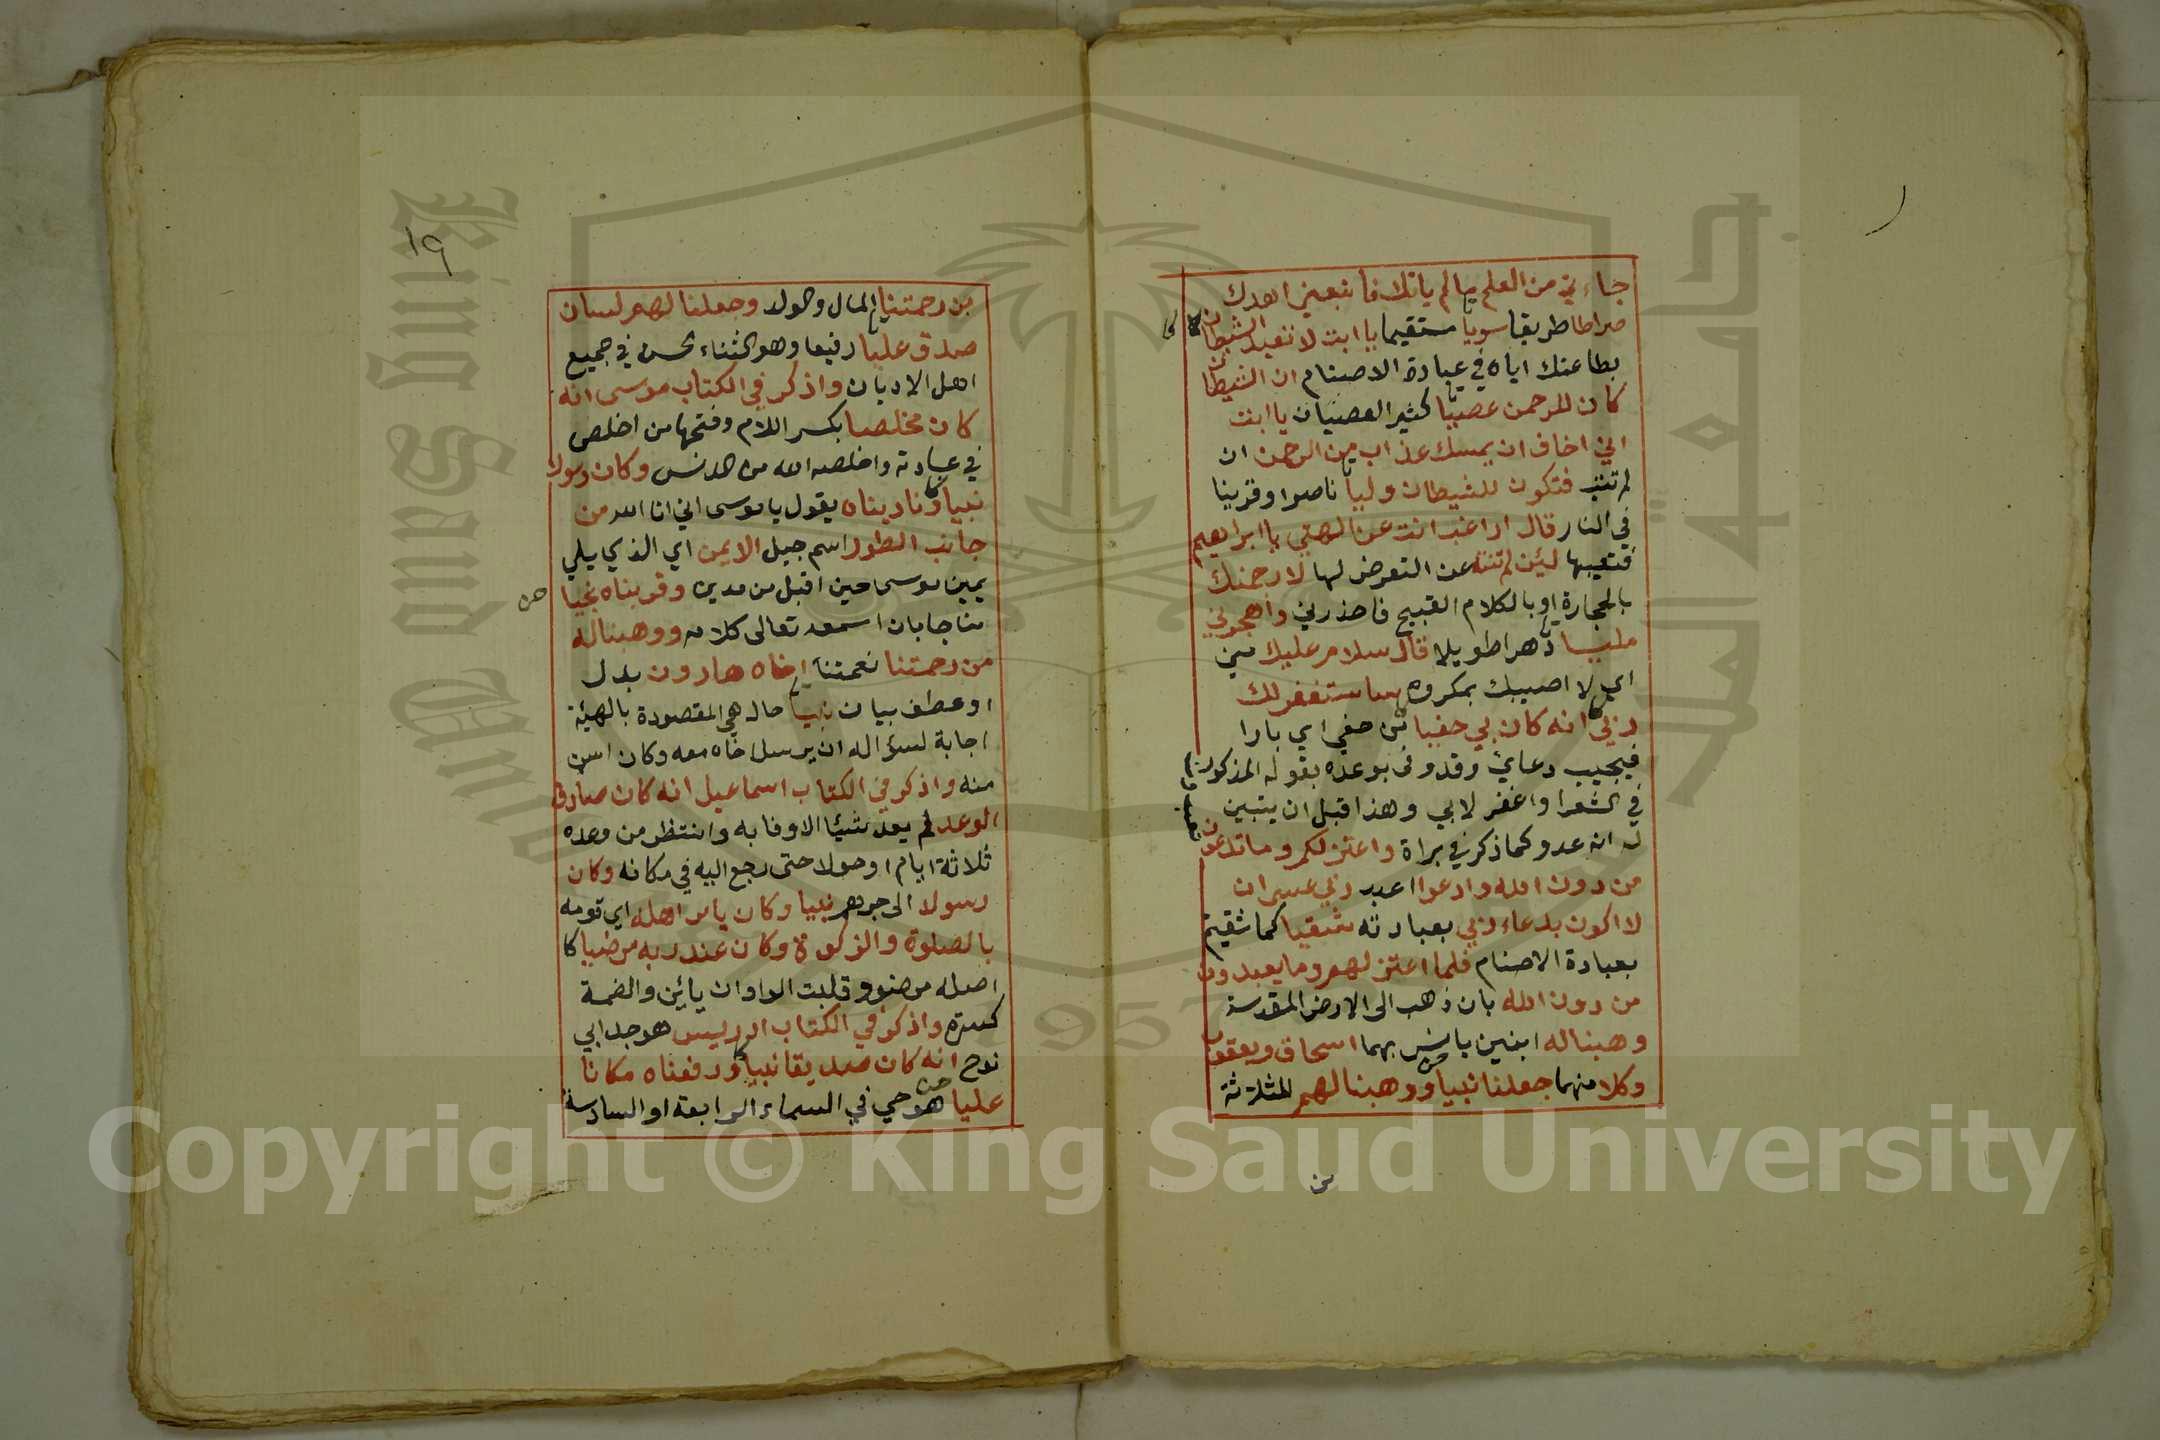 جاءني من العلم ما لم ياتك فاتبعني اهدك
صراطا طريقا سويا مستقيما يا ابت لا تعبد الشيطان
بطاعتك اياه في عبادة الاصنام ان الشيطان
كان للرحمن عصيا كثير العصيان يا ابت
اني اخاف ان يمسك عذاب من الرحمن ان
لم تتب فتكون للشيطان وليا ناصرا وقرينا
في النار قال اراغب انت عن الهتي يا ابراهيم
فتعيبها لئن لم تنته عن التعرض لها لارجمنك
بالحجارة او بالكلام القبيح فاحذرني واهجرني
مليا دهرا طويلا قال سلام عليك مني
اي لا اصيبك بمكروه ساستغفر لك
ربي انه كان بي حفيا من حفي اي بارا
فيجيب دعائي وقد وفى بوعده بقوله المذكور
في الشعرا واغفر لابي وهذا قبل ان يتبين
له انه عدو كما ذكر في براة واعتزلكم وما تدعون
من دون الله وادعوا اعبد ربي عسى ان
لا اكون بدعاء ربي بعبادته شقيا كما شقيتم
بعبادة الاصنام فلما اعتزلهم وما يعبدون
من دون الله بان ذهب الى الارض المقدسة
وهبنا له ابنين يانس بهما اسحاق ويعقوب
وكلا منهما جعلنا نبيا ووهبنا لهم للثلاثة
من
١٩
من رحمتنا المال والولد وجعلنا لهم لسان
صدق عليا رفيعا وهو الثناء الحسن في جميع
اهل الاديان واذكر في الكتاب موسى انه
كان مخلصا بكسر اللام وفتحها من اخلص
في عبادته واخلصه الله من الدنس وكان رسولا
نبيا وناديناه بقول يا موسى اني انا الله من
جانب الطور اسم جبل الايمن اي الذي يلي
يمين موسى حين اقبل من مدين وقربناه نجيا
مناجا بان اسمعه تعالى كلامه ووهبنا له
من رحمتنا نعمتنا اخاه هارون بدل
او عطف بيان نبيا حال هي المقصودة بالهبة
اجابة لسؤاله ان يرسل اخاه معه وكان اسن
منه واذكر في الكتاب اسماعيل انه كان صادق
الوعد لم يعد شيئا الا وفا به وانتظر من وعده
ثلاثة ايام او حولا حتى رجع اليه في مكانه وكان
رسولا الى جرهم نبيا وكان يامر اهله اي قومه
بالصلوة والزكوة وكان عند ربه مرضيا
اصله مرضوو قلبت الواوان يائين والضمة
كسرة واذكر في الكتاب ادريس هو جد ابي
نوح انه كان صديقا نبيا ورفعناه مكانا
عليا هو حي في السماء الرابعة او السادسة
Copyright © King Saud University
King Saud University
1957